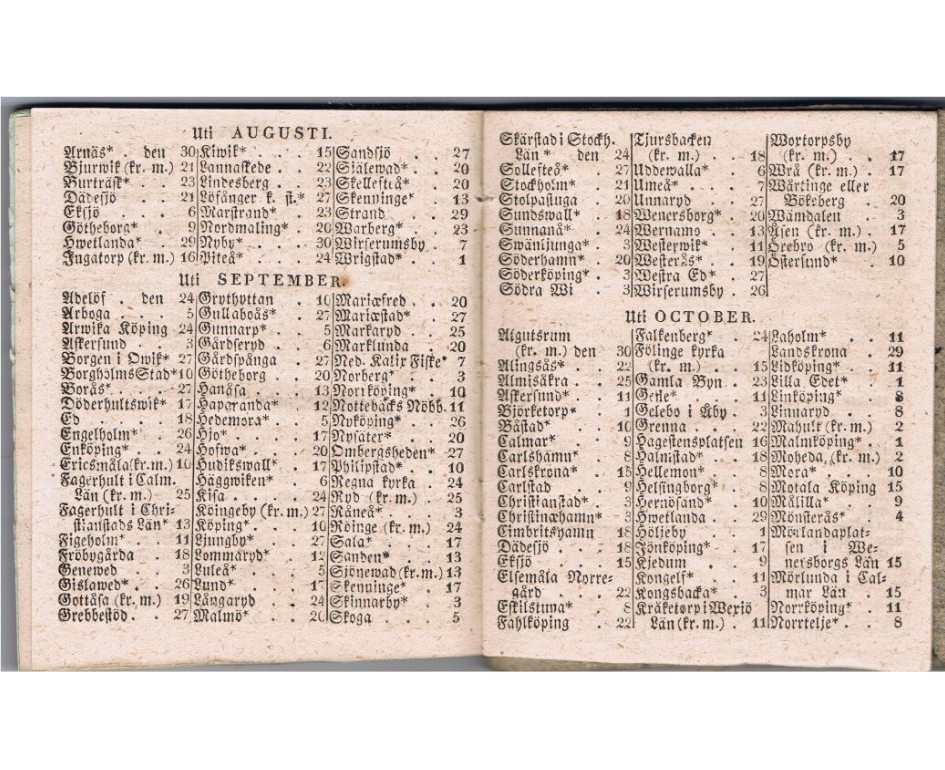 Uti AUGUSTI.
Arnäs* . den 30
Bjurwik (kr. m.) 21
Burträsk* . . 23
Dädesjö . . 21
Eksjö . . . 6
Götheborg* . 9
Hwetlanda* . 29
Ingatorp (kr. m.) 16
Kiwik* . . . 15
Lannaskede . . 22
Lindesberg . . 23
Löfånger k. st.* 27
Marstrand* . . 23
Nordmaling* . 20
Nyby* . . . 30
Piteå* . . . 24
Sandsjö . . 27
Själewad* . . 20
Skellefteå* . . 20
Skenninge* . 13
Strand . . . 29
Warberg* . . 23
Wirserumsby . 7
Wrigstad* . . 1
Uti SEPTEMBER.
Adelöf . den 24
Arboga . . . 5
Arwika Köping 24
Askersund . . 3
Borgen i Qwik* 27
Borgholms Stad* 10
Borås* . . . 27
Döderhultswik* 17
Ed . . . . 18
Engelholm* . 26
Enköping* . . 24
Ericsmåla (kr. m.) 10
Fagerhult i Calm.
Län (kr. m.) 25
Fagerhult i Chri-
stianstads Län* 13
Figeholm* . . 11
Fröbygårda . 18
Genewed . . 3
Gislawed* . . 26
Gottåsa (kr. m.) 19
Grebbestöd . . 27
Grythyttan . . 10
Gullaboås* . . 27
Gunnarp* . . 5
Gårdseryd . . 6
Gårdspånga . 27
Götheborg . . 20
Hanåsa . . . 13
Haparanda* . 12
Hedemora* . . 5
Hjo* . . . . 17
Hofwa* . . . 20
Hudikswall* . 17
Häggwiken* . 6
Kisa . . . . 24
Köingeby (kr. m.) 27
Köping* . . . 10
Ljungby* . . 27
Lommaryd* . 12
Luleå* . . . 5
Lund* . . . 17
Långaryd . . 24
Malmö* . . . 20
Mariæfred . . 20
Mariæstad* . 27
Markaryd . . 25
Marklunda . 20
Ned. Kalix Fiske* 7
Norberg* . . 3
Norrköping* . 10
Nottebäcks Nöbb. 11
Nyköping* . . 26
Nysäter* . . 20
Ombergsheden* 27
Philipstad* . . 10
Regna kyrka . 24
Ryd (kr. m.) . 25
Råneå* . . . 3
Röinge (kr. m.) 24
Sala* . . . 17
Sanden* . . 13
Sjönewad (kr. m.) 13
Skenninge* . 17
Skinnarby* . . 3
Skoga . . . 5
Skärstad i Stockh.
Län* . den 24
Sollefteå* . . 27
Stockholm* . 21
Stolpastuga . 20
Sundswall* . 18
Sunnanå* . . 24
Swänljunga* . 3
Söderhamn* . 20
Söderköping* . 3
Södra Wi . . 3
Tjursbacken
(kr. m.) . . 18
Uddewalla* . . 6
Umeå* . . . 7
Unnaryd . . 27
Wenersborg* . 20
Wernamo . . 13
Westerwik* . 11
Westerås* . . 19
Westra Ed* . 27
Wirserumsby . 26
Wortorpsby
(kr. m.) . . 17
Wrå (kr. m.) . 17
Wärtinge eller
Bökeberg 20
Wämdalen . 3
Åsen (kr. m.) . 17
Örebro (kr. m.) 5
Östersund* . . 10
Uti OCTOBER.
Algutsrum
(kr. m.) den 30
Alingsås* . . 22
Almisåkra . . 25
Askersund* . . 8
Björketorp* . 1
Båstad* . . 10
Calmar* . . 9
Carlshamn* . 8
Carlskrona* . 15
Carlstad . . 9
Christianstad* . 3
Christinæhamn* 3
Cimbritshamn 18
Dädesjö . . 18
Eksjö . . . 15
Elsemåla Norre-
gård . . . 22
Eskilstuna* . 8
Fahlköping . 22
Falkenberg* . 24
Fölinge kyrka
(kr. m.) . . 15
Gamla Byn . 23
Gefle* . . . 11
Gelebo i Åby . 3
Grenna . . . 22
Hagestensplatsen 16
Halmstad* . . 18
Hellemon* . . 8
Helsingborg* . 8
Hernösand* . 10
Hwetlanda . . 29
Höljeby . . . 1
Jönköping* . . 17
Kjedum . . . 9
Kongelf* . . 11
Kongsbacka* . 3
Kräketorp i Wexiö
Län (kr. m.) . 11
Laholm* . . 11
Landskrona . 29
Lidköping* . . 11
Lilla Edet* . 1
Linköping* . . 8
Linnaryd . . 8
Mahult (kr. m.) 2
Malmköping* . 1
Moheda (kr. m.) 2
Mora* . . . 10
Motala Köping 15
Målilla* . . 9
Mönsterås* . 4
Mörlandaplat-
sen i We-
nersborgs Län 15
Mörlunda i Cal-
mar Län . 15
Norrköping* . 11
Norrtelje* . . 8